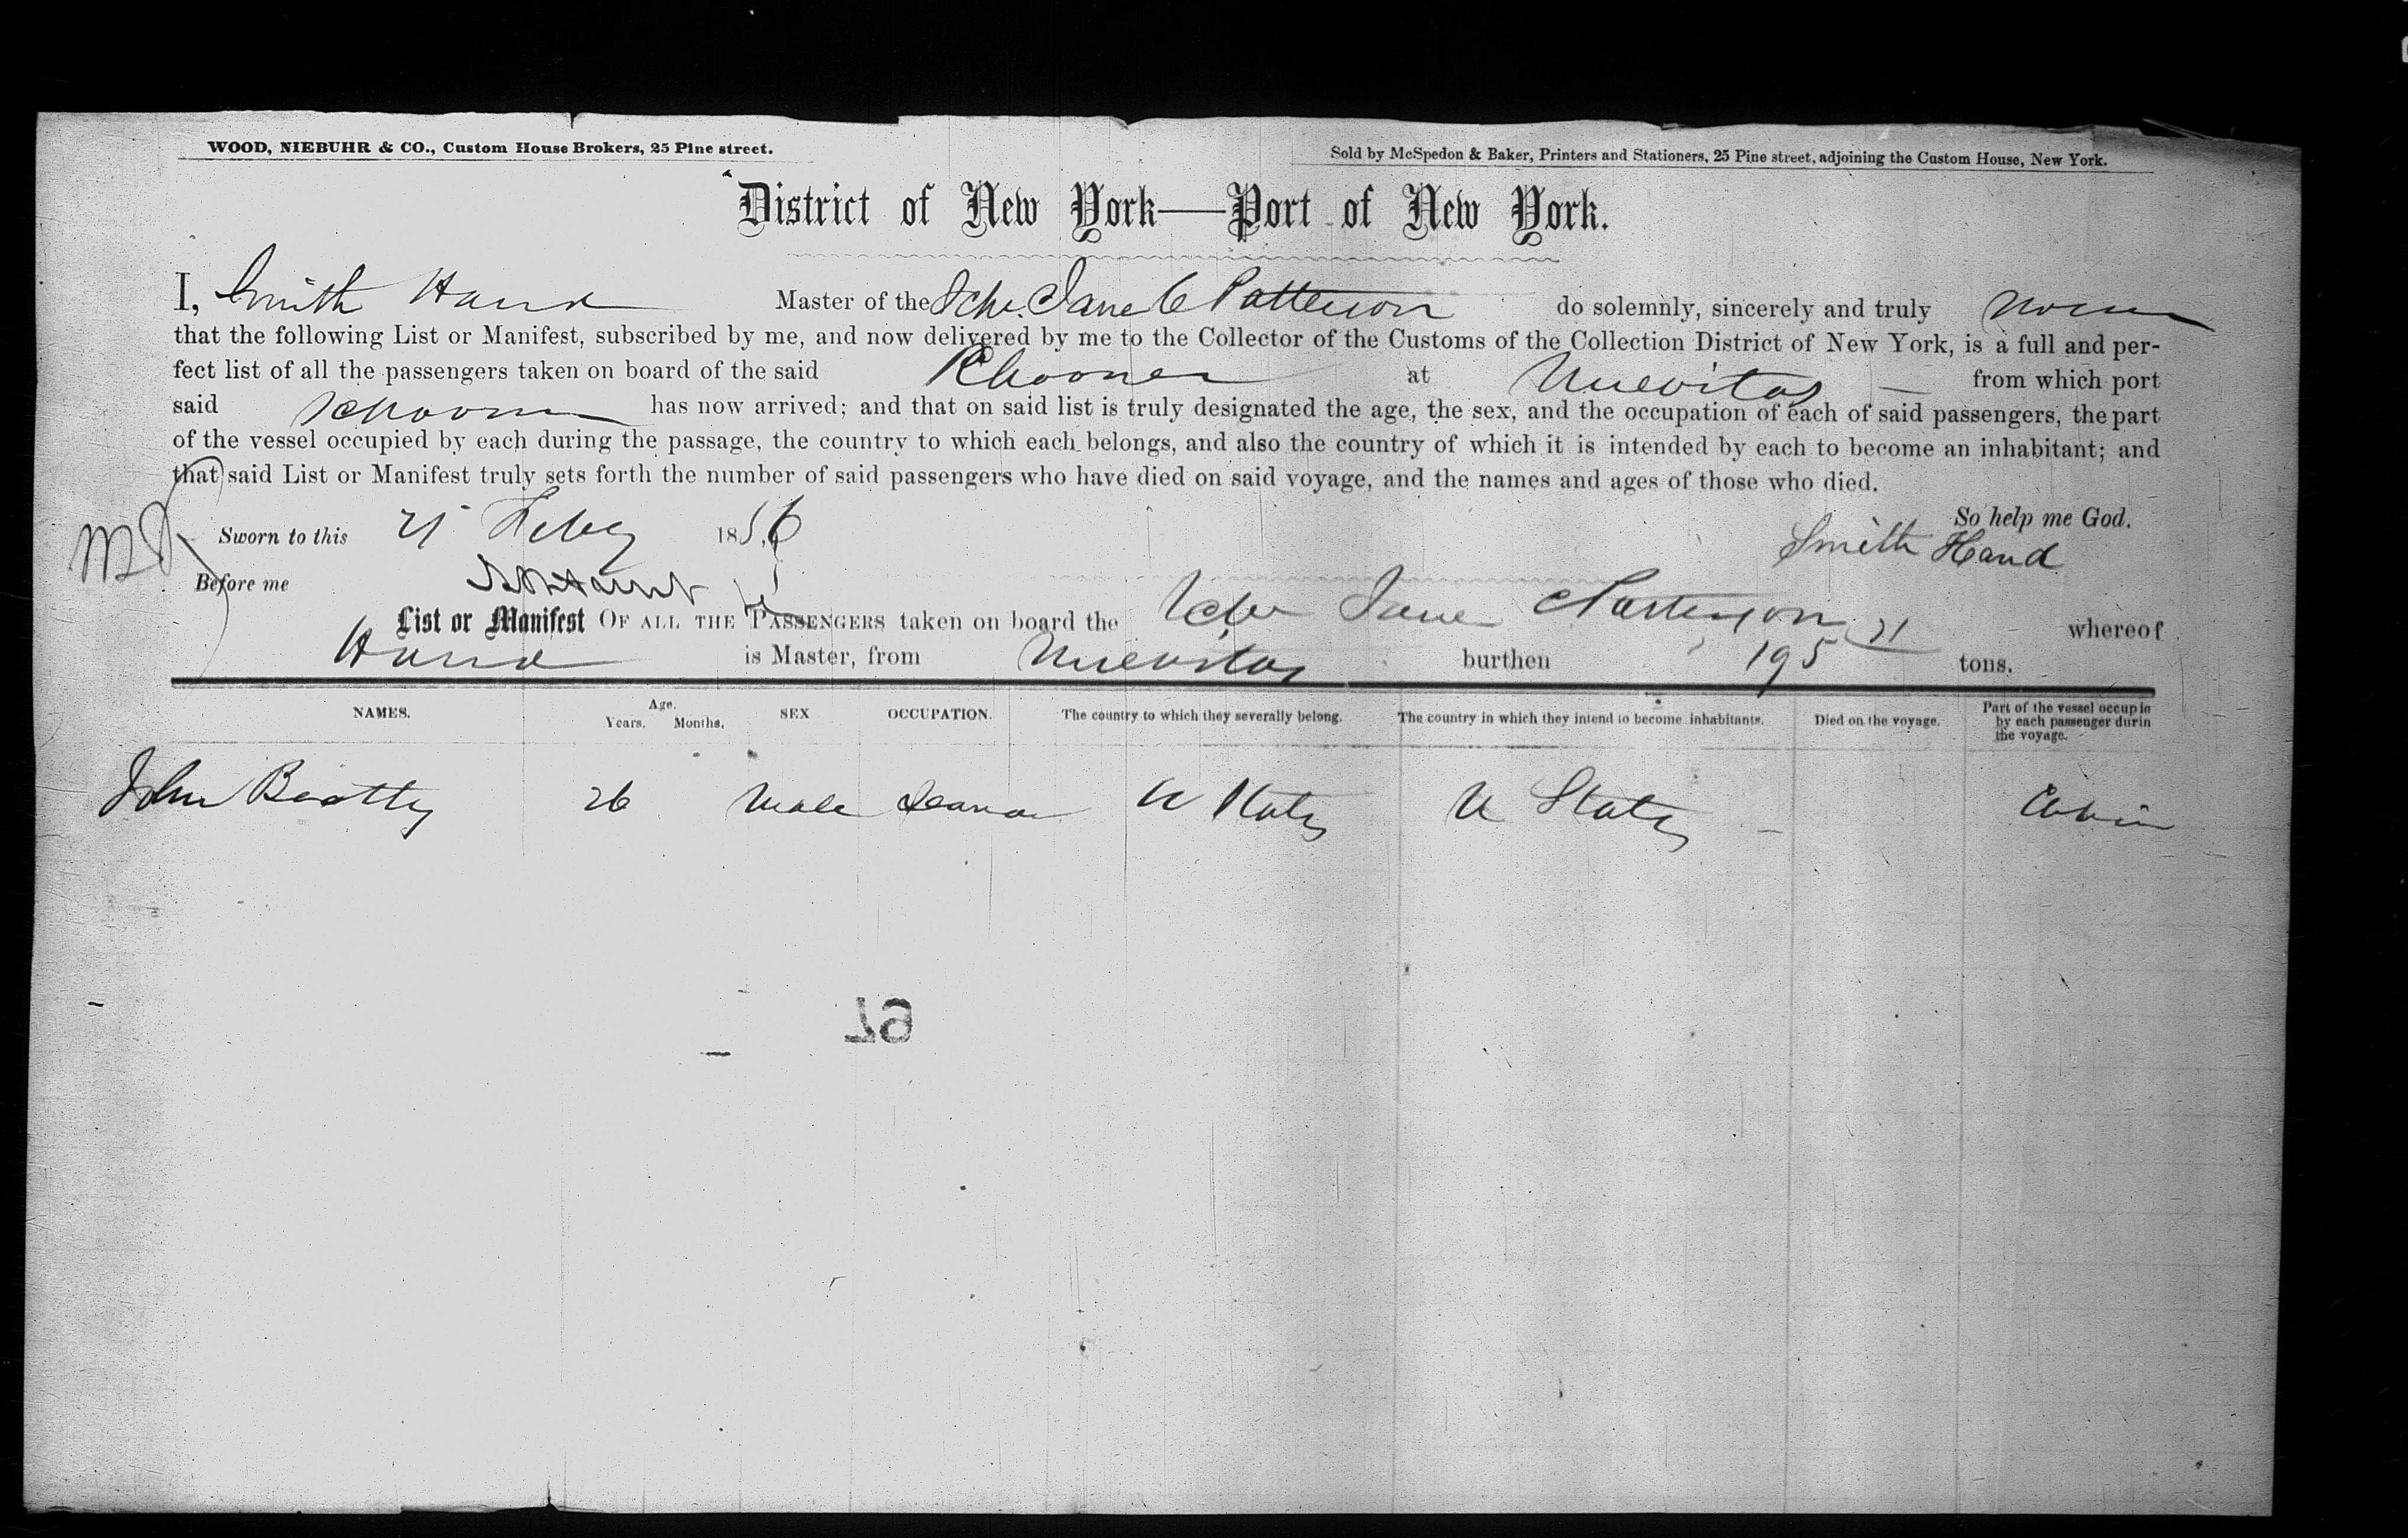 WOOD, NIEBUHR & CO., Custom House Brokers, 25 Pine street.
Sold by McSpedon & Baker, Printers and Stationers, 25 Pine street, adjoining the Custom House, New York.
District of New York—Port of New York.
I, Smith Hand Master of the Schr. Jane C Patterson do solemnly, sincerely and truly
that the following List or Manifest, subscribed by me, and now delivered by me to the Collector of the Customs of the Collection District of New York, is a full and per-
fect list of all the passengers taken on board of the said Schooner at Nuevitas from which port
said Schooner has now arrived; and that on said list is truly designated the age, the sex, and the occupation of each of said passengers, the part
of the vessel occupied by each during the passage, the country to which each belongs, and also the country of which it is intended by each to become an inhabitant; and
that said List or Manifest truly sets forth the number of said passengers who have died on said voyage, and the names and ages of those who died.
So help me God.
Sworn to this Feby 1856
Smith Hand
Before me
List or Manifest OF ALL THE PASSENGERS taken on board the Schr Jane C Patterson whereof
Hand is Master, from Nuevitas burthen 195 21 tons.
NAMES. Age. Years. Months. SEX OCCUPATION. The country to which they severally belong. The country in which they intend to become inhabitants. Died on the voyage. Part of the vessel occupie by each passenger durin the voyage.
John Beatty 26 Male Seaman U States U States – Cabin
67